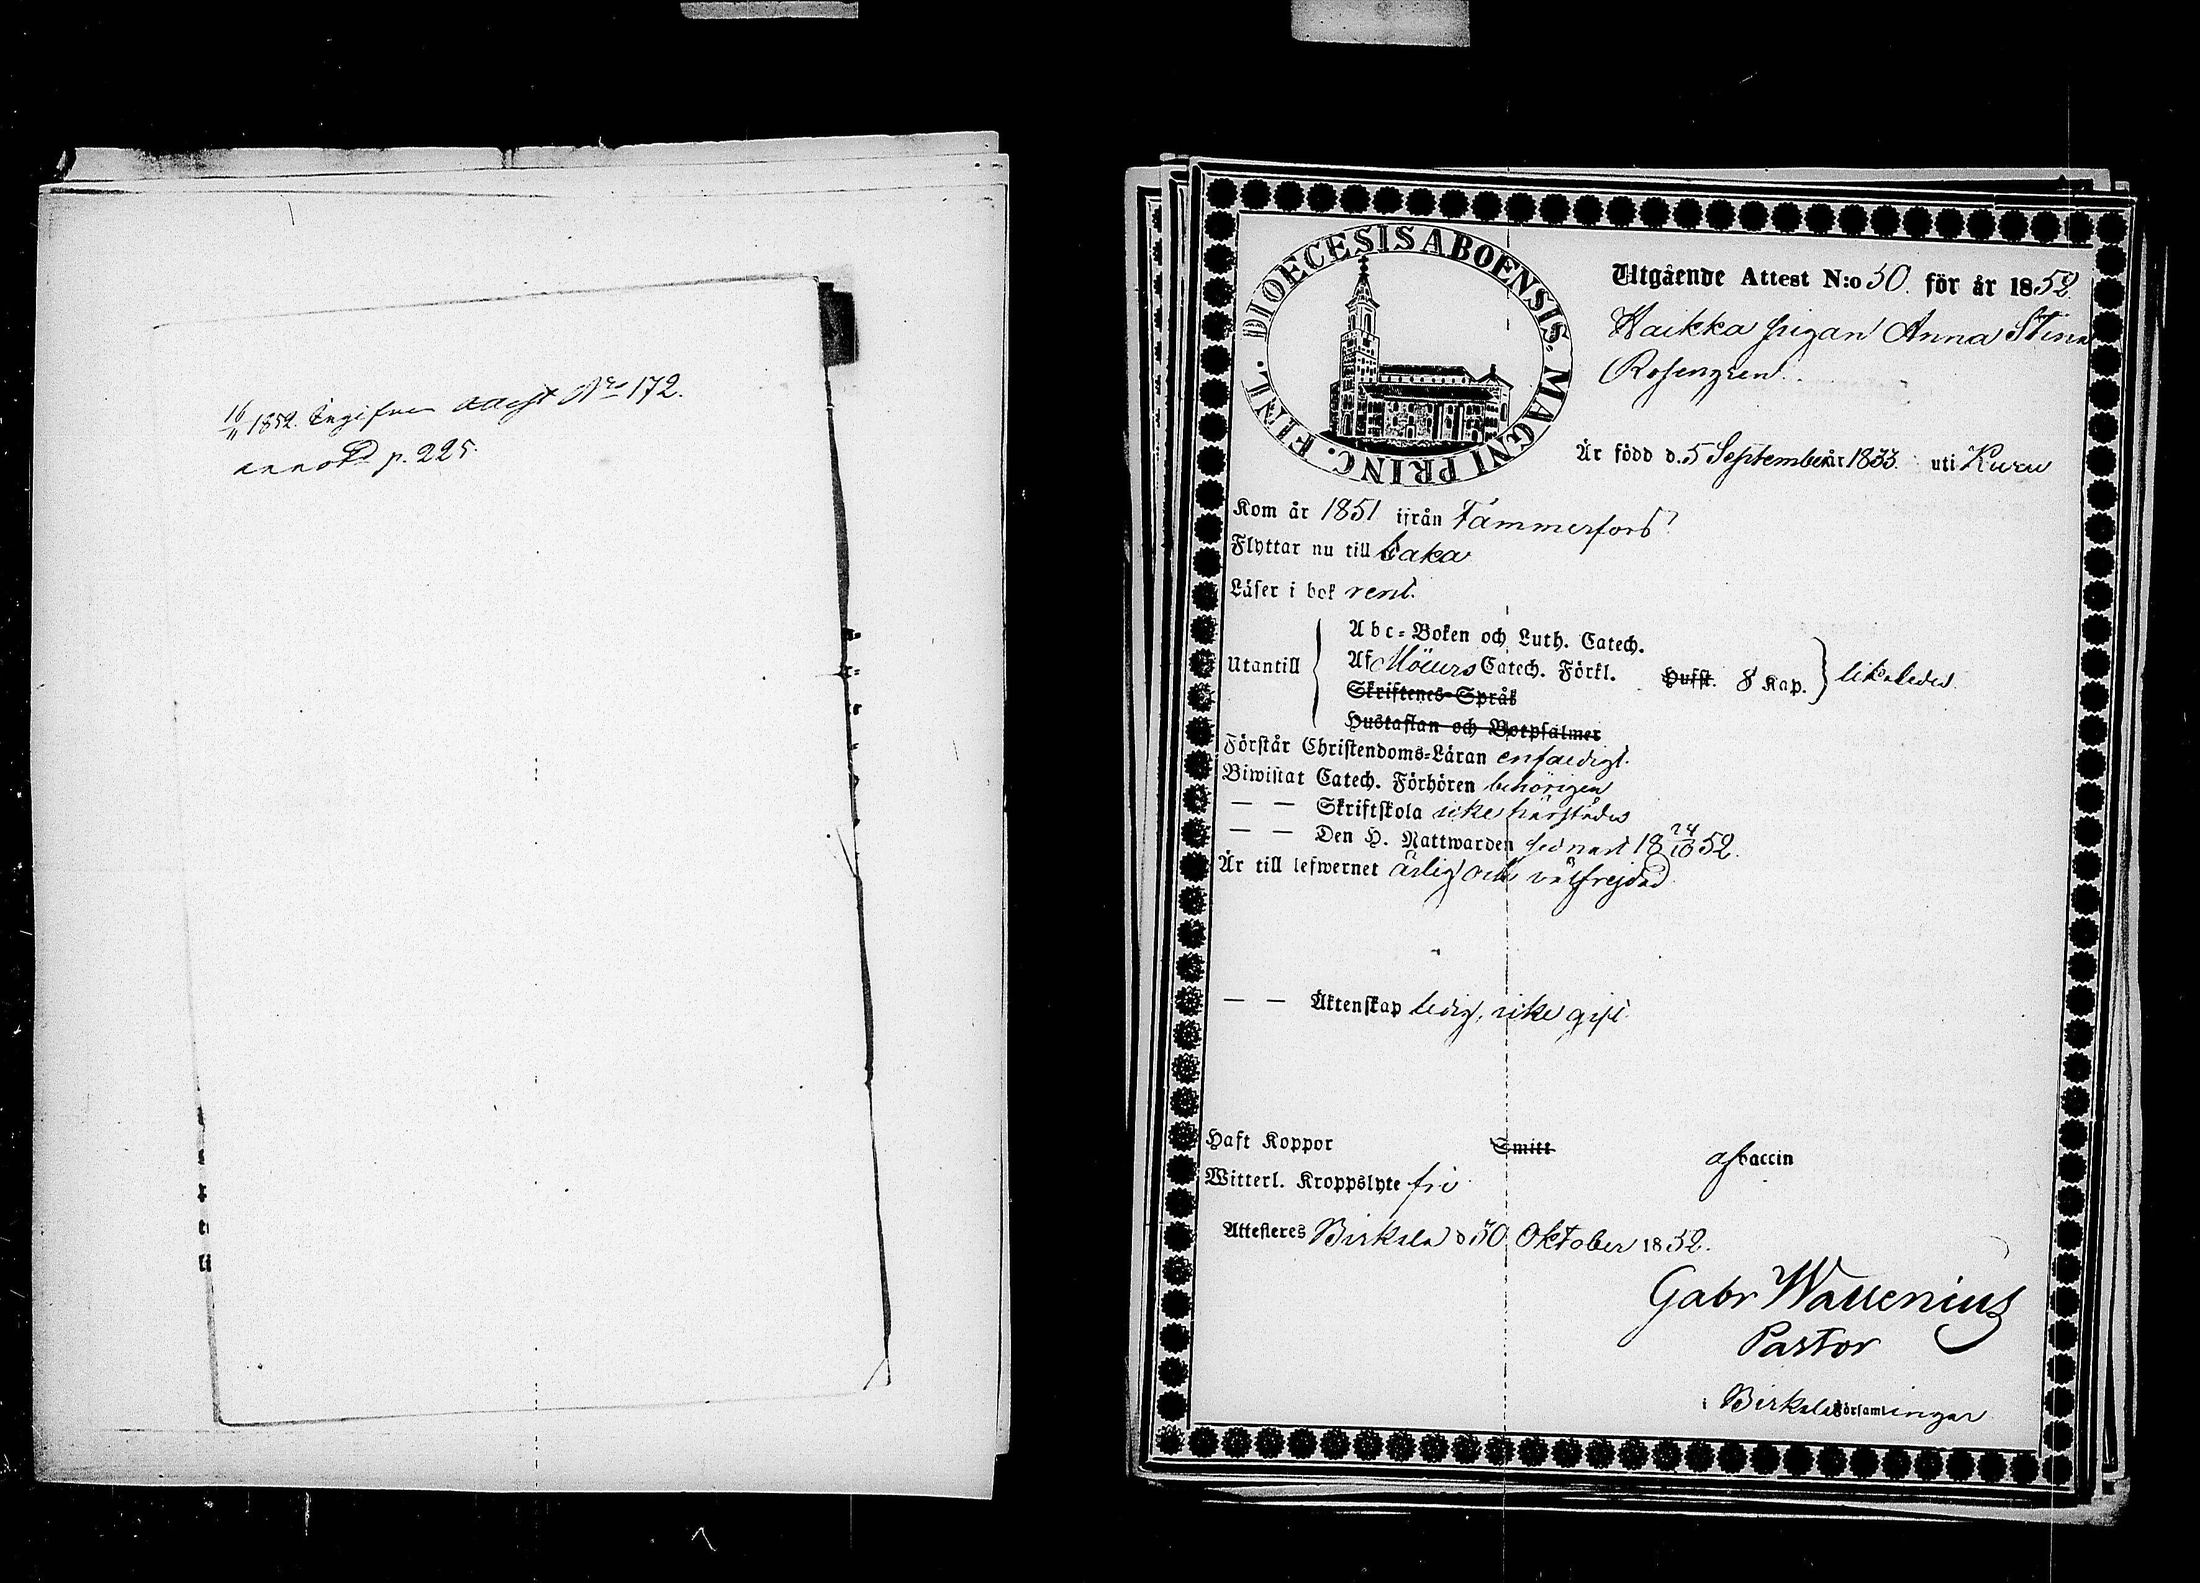 16/11 1852. Ingifven attest Nro 172.
annotd p. 225.
DIOECESIS ABOENSIS. MAGNI PRINC. FINL.
Utgående Attest N:o 50. för år 1852.
Haikka pigan Anna Stina
Rosengren.
Är född d. 5 September år 1833. uti Kuru
Kom år 1851 ifrån Tammerfors
Flyttar nu till baka
Läser i bok rent.
Abc-Boken och Luth. Catech.
Utantill Af Möllers Catech. Förkl. Hufst. 8 Kap. likaledes.
Skriftenes-Språk
Hustaflan och Botpsalmer
Förstår Christendoms-Läran enfaldigt.
Biwistat Catech. Förhören behörigen
— — Skriftskola icke härstädes
— — Den H. Nattwarden sednast 18 24/10 52.
Är till lefwernet ärlig och välfrejdad
— — Äktenskap ledig, icke gift
Haft Koppor Smitt af vaccin
Witterl. Kroppslyte fri
Attesteres Birkala d 30 Oktober 1852.
Gabr Wallenius
Pastor
i Birkala Församlingar